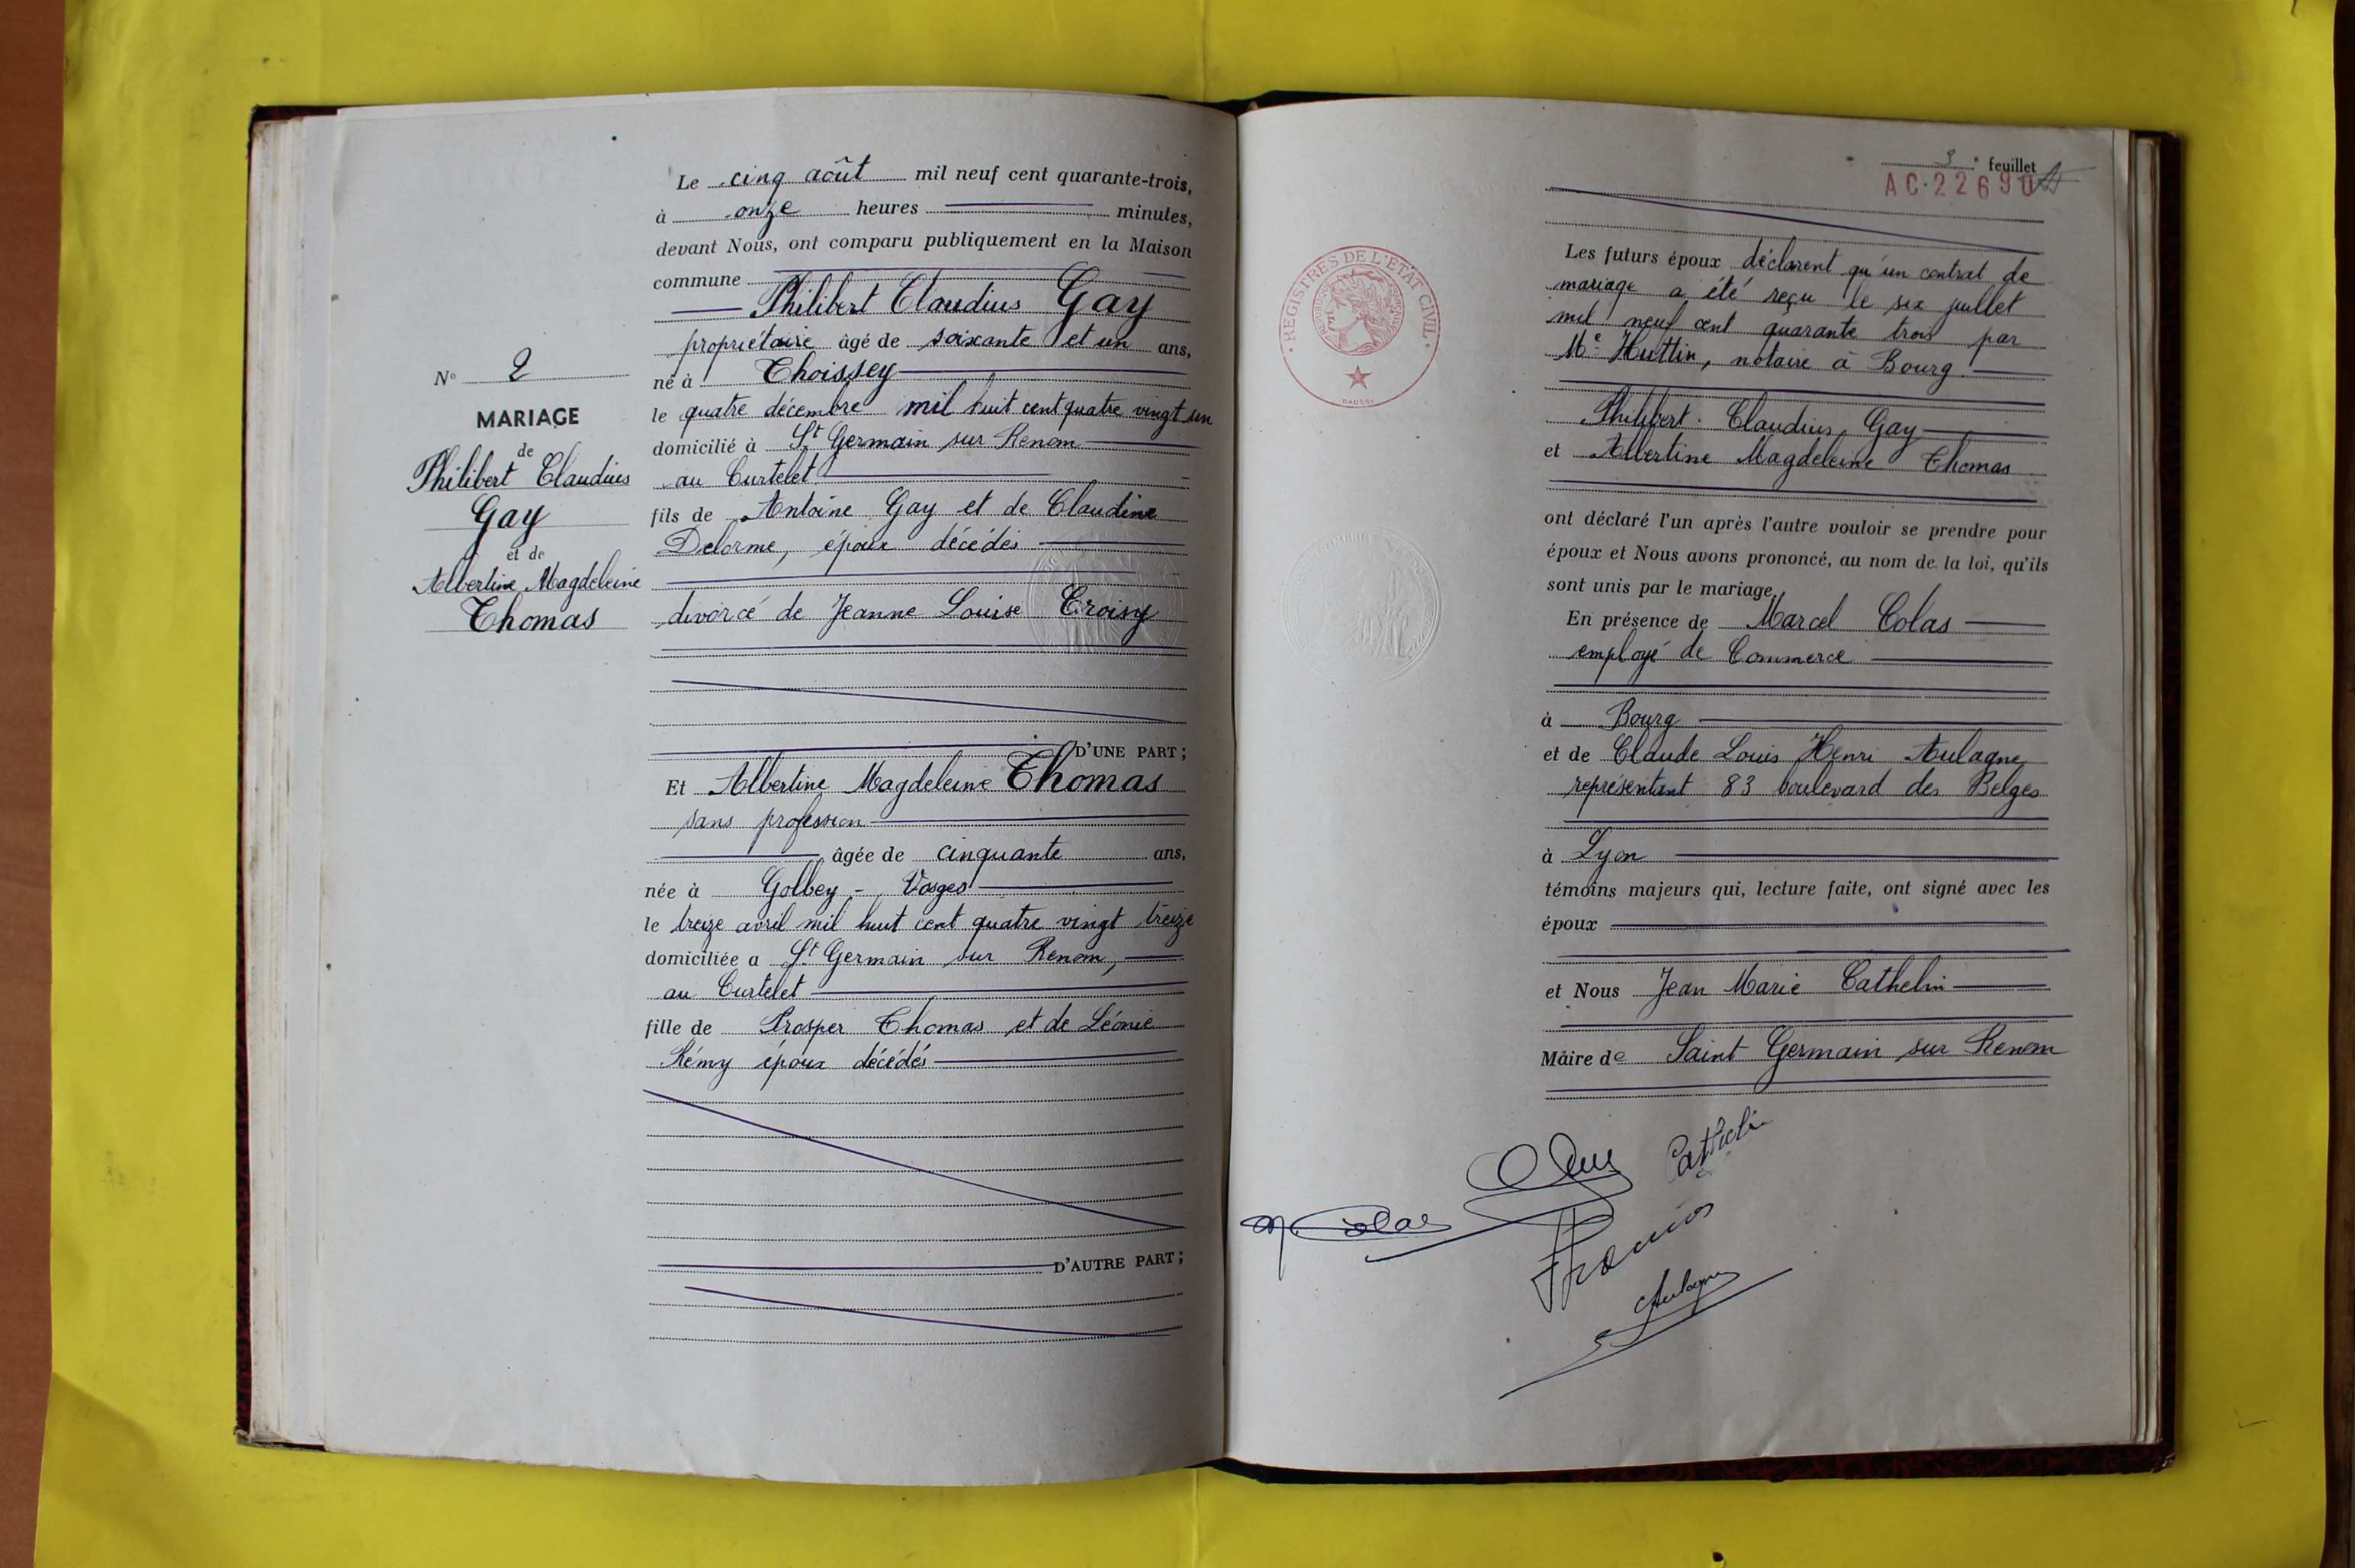 Le cinq août mil neuf cent quarante-trois,
à onze heures minutes,
devant Nous, ont comparu publiquement en la Maison
commune
Philibert Claudius Gay
propriétaire âgé de soixante et un ans,
né à Thoissey
le quatre décembre mil huit cent quatre vingt un
domicilié à St Germain sur Renom
au Curtelet
fils de Antoine Gay et de Claudine
Delorme, époux décédés
divorcé de Jeanne Louise Croisy
D'UNE PART ;
Et Albertine Magdeleine Thomas
sans profession
âgée de cinquante ans,
née à Golbey - Vosges
le treize avril mil huit cent quatre vingt treize
domiciliée a St Germain sur Renom,
au Curtelet
fille de Prosper Thomas et de Léonie
Rémy époux décédés
D'AUTRE PART ;
N° 2
MARIAGE
de
Philibert Claudius
Gay
et de
Albertine Magdeleine
Thomas
3 e feuillet
AC.22690
REGISTRES DE L'ETAT CIVIL
DAUSSY
Les futurs époux déclarent qu'un contrat de
mariage a été reçu le six juillet
mil neuf cent quarante trois par
Me Huttin, notaire à Bourg.
Philibert Claudius Gay
et Albertine Magdeleine Thomas
ont déclaré l'un après l'autre vouloir se prendre pour
époux et Nous avons prononcé, au nom de la loi, qu'ils
sont unis par le mariage.
En présence de Marcel Colas
employé de Commerce
à Bourg
et de Claude Louis Henri Aulagne
représentant 83 boulevard des Belges
à Lyon
témoins majeurs qui, lecture faite, ont signé avec les
époux
et Nous Jean Marie Cathelin
Maire de Saint Germain sur Renom
Cathelin
M. Colas
Thomas
Aulagne